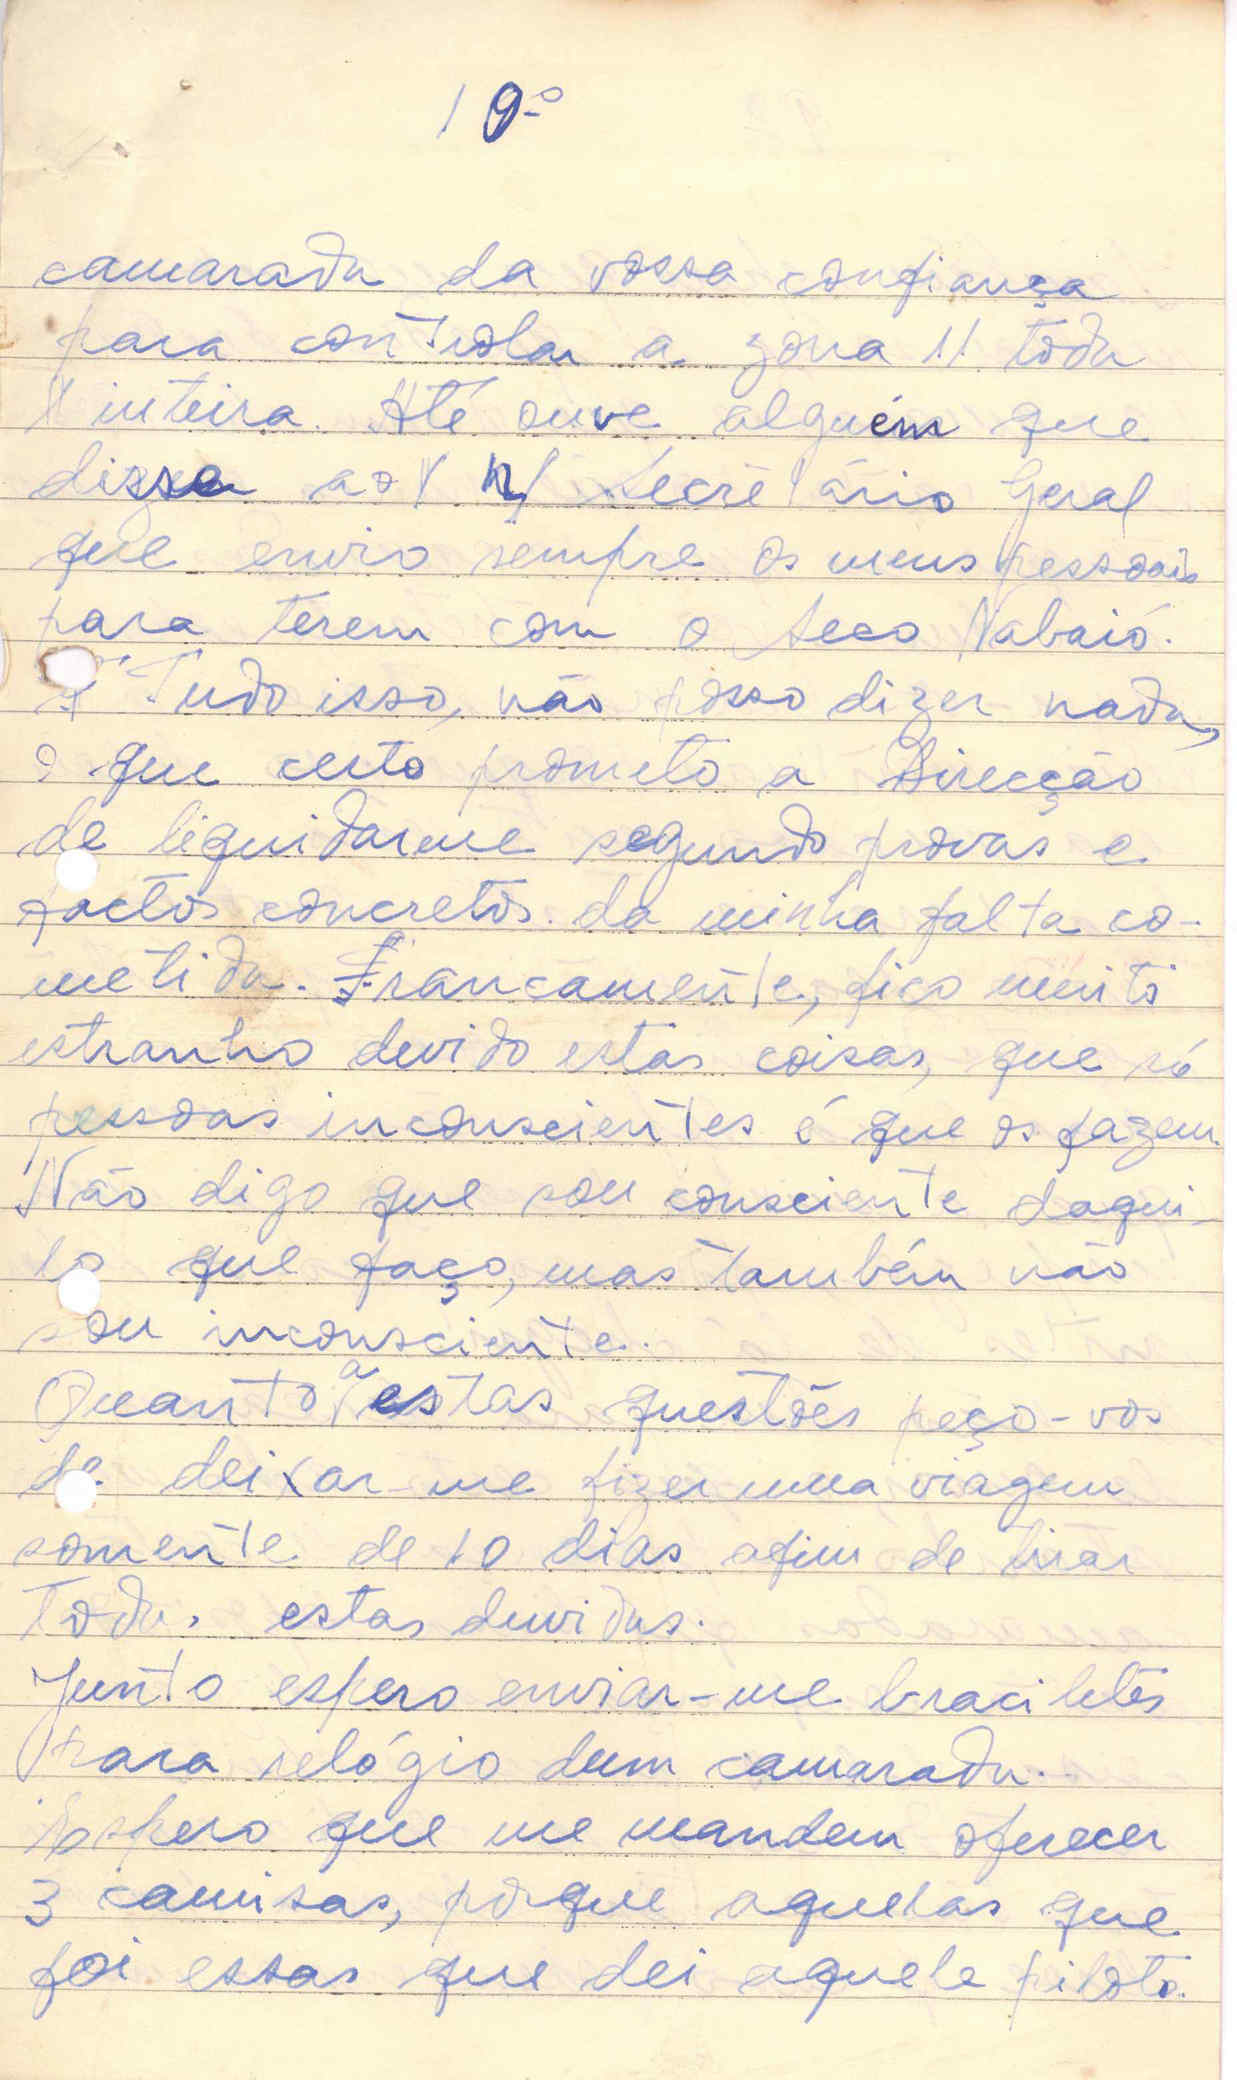 10º
camarada da vossa confiança
para controlar a zona 11 toda
inteira. Até ouve alguém que
disse ao n/ Secretário Geral
que envio sempre os meus pessoais
para terem com o Seco Nabaió.
Tudo isso, não posso dizer nada,
o que certo prometo a Direcção
de liquidarme segundo provas e
factos concretos da minha falta co-
metida. Francamente, fico muito
estranho devido estas coisas, que só
pessoas inconscientes é que os fazem.
Não digo que sou consciente daqui-
lo que faço, mas também não
sou inconsciente.
Quanto a estas questões peço-vos
de deixar-me fizer uma viagem
somente de 10 dias afim de tirar
todas estas duvidas.
Junto espero enviar-me braciletes
para relógio dum camarada.
Espero que me mandem oferecer
3 camisas, porque aquelas que
foi essas que dei aquele piloto.